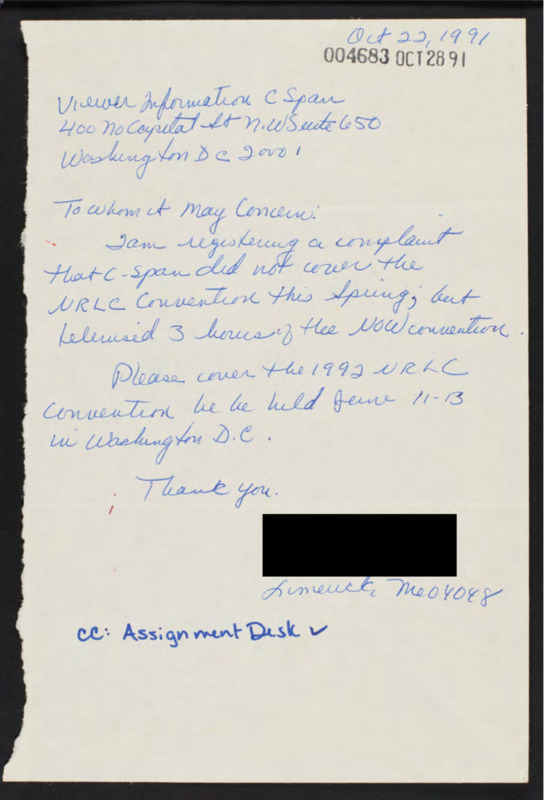 Oct 22, 1991
004683 OCT 28 91
Viewer Information C Span
400 No Capital St N.W Suite 650
Washington DC 20001
To whom it May Concern:
I am registering a complaint
that C-Span did not cover the
NRLC Convention this Spring; but
televised 3 hours of the NOW convention.
Please cover the 1992 NRLC
Convention be be held June 11-13
in Washington D.C.
Thank you.
Limerick, Me 04048
cc: Assignment Desk ✓